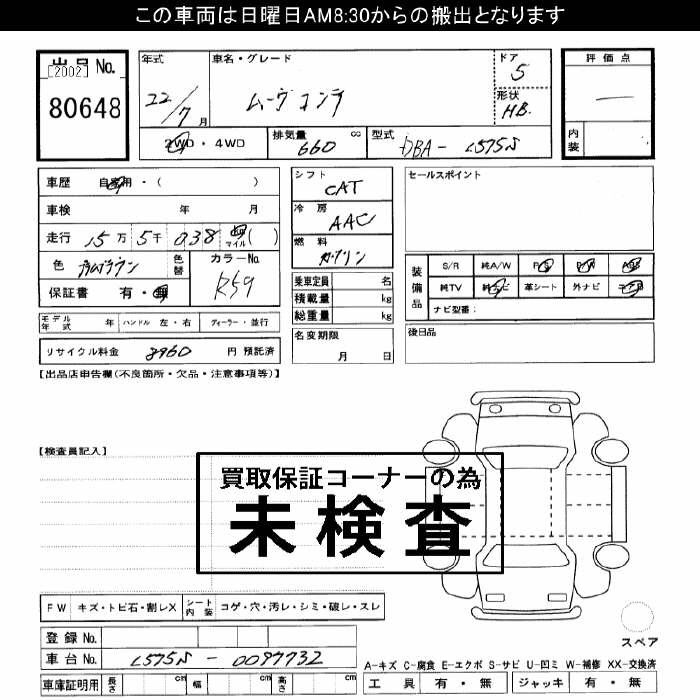 この車両は日曜日AM8:30からの搬出となります
出品 No.
[2002]
80648
年式
22/7 月
車名・グレード
ムーヴ コンテ
ドア
5
形状
HB
評価点
内装
2WD・4WD
排気量 660 cc
型式 DBA- L575S
車歴 自家用・( )
車検 年 月
走行 15万 5千 038 マイル( )
色
色替
カラーNo.
R59
保証書 有・無
モデル年式 年 ハンドル 左・右 ディーラー・並行
リサイクル料金 8960 円 預託済
シフト
CAT
冷房
AAC
燃料
ガソリン
乗車定員 名
積載量 kg
総重量 kg
名変期限
月 日
セールスポイント
装備品
S/R 純A/W P/S P/W A/B
純TV 純ナビ 革シート 外ナビ
ナビ型番:
後日品
【出品店申告欄(不良箇所・欠品・注意事項等)】
【検査員記入】
買取保証コーナーの為
未検査
FW キズ・トビ石・割レX シート内装 コゲ・穴・汚レ・シミ・破レ・スレ
登録 No.
車台 No. L575S - 0097732
車庫証明用 長さ cm 幅 cm 高さ cm
スペア
A-キズ C-腐食 E-エクボ S-サビ U-凹ミ W-補修 XX-交換済
工具 有・無 ジャッキ 有・無